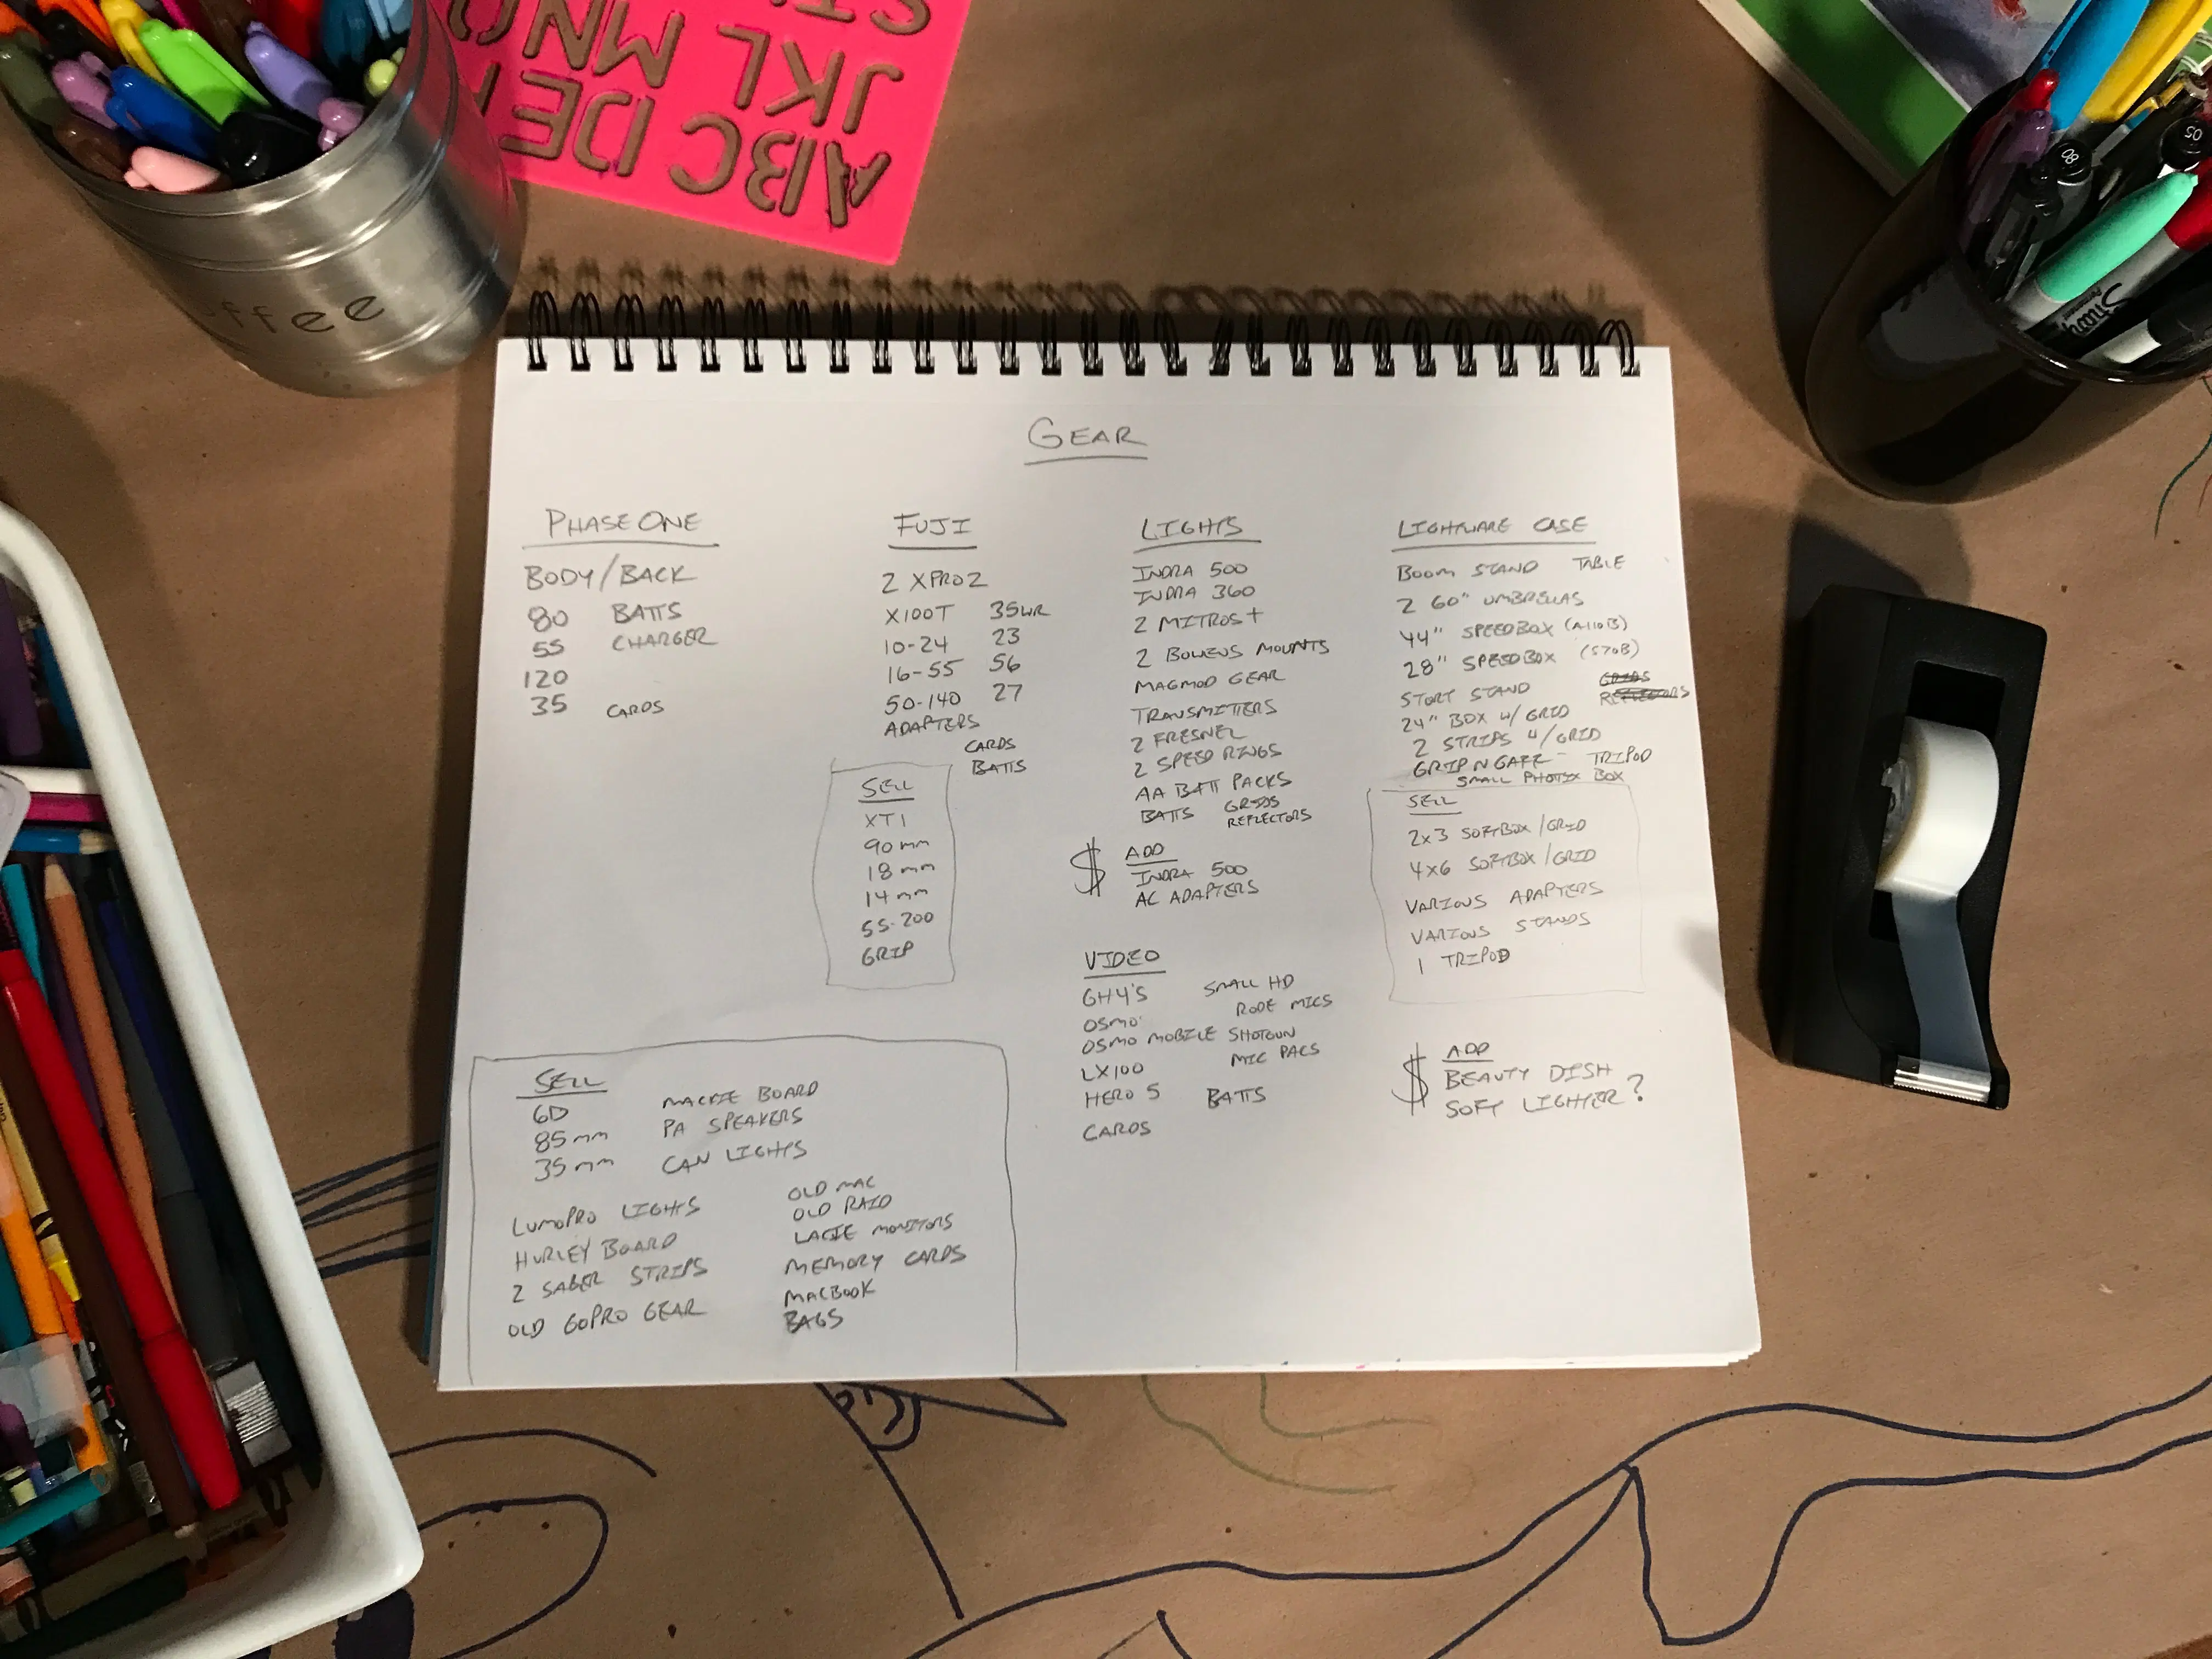 ST
JKL MNO
ABC DE
ffee
80
05
Sharpie
GEAR
PHASE ONE
BODY/BACK
80 BATTS
55 CHARGER
120
35 CARDS
FUJI
2 XPRO2
X100T 35WR
10-24 23
16-55 56
50-140 27
ADAPTERS
CARDS
BATTS
SELL
XT1
90mm
18mm
14mm
55-200
GRIP
LIGHTS
INDRA 500
INDRA 360
2 MITROS+
2 BOWENS MOUNTS
MAGMOD GEAR
TRANSMITTERS
2 FRESNEL
2 SPEED RINGS
AA BATT PACKS
BATTS GRIDS
REFLECTORS
$ ADD
INDRA 500
AC ADAPTERS
VIDEO
GH4'S SMALL HD
OSMO RODE MICS
OSMO MOBILE SHOTGUN
LX100 MIC PACS
HERO 5 BATTS
CARDS
LIGHTWARE CASE
BOOM STAND TABLE
2 60" UMBRELLAS
44" SPEEDBOX (A110B)
28" SPEEDBOX (S70B)
STORT STAND GRIDS
REFLECTORS
24" BOX W/ GRID
2 STRIPS W/GRID
GRIP N GAFF - TRIPOD
SMALL PHOTIX BOX
SELL
2x3 SOFTBOX/GRID
4x6 SOFTBOX/GRID
VARIOUS ADAPTERS
VARIOUS STANDS
1 TRIPOD
$ ADD
BEAUTY DISH
SOFT LIGHTER?
SELL
6D MACKIE BOARD
85mm PA SPEAKERS
35mm CAN LIGHTS
LUMOPRO LIGHTS
HURLEY BOARD
2 SABER STRIPS
OLD GOPRO GEAR
OLD MAC
OLD RAID
LACIE MONITORS
MEMORY CARDS
MACBOOK
BAGS